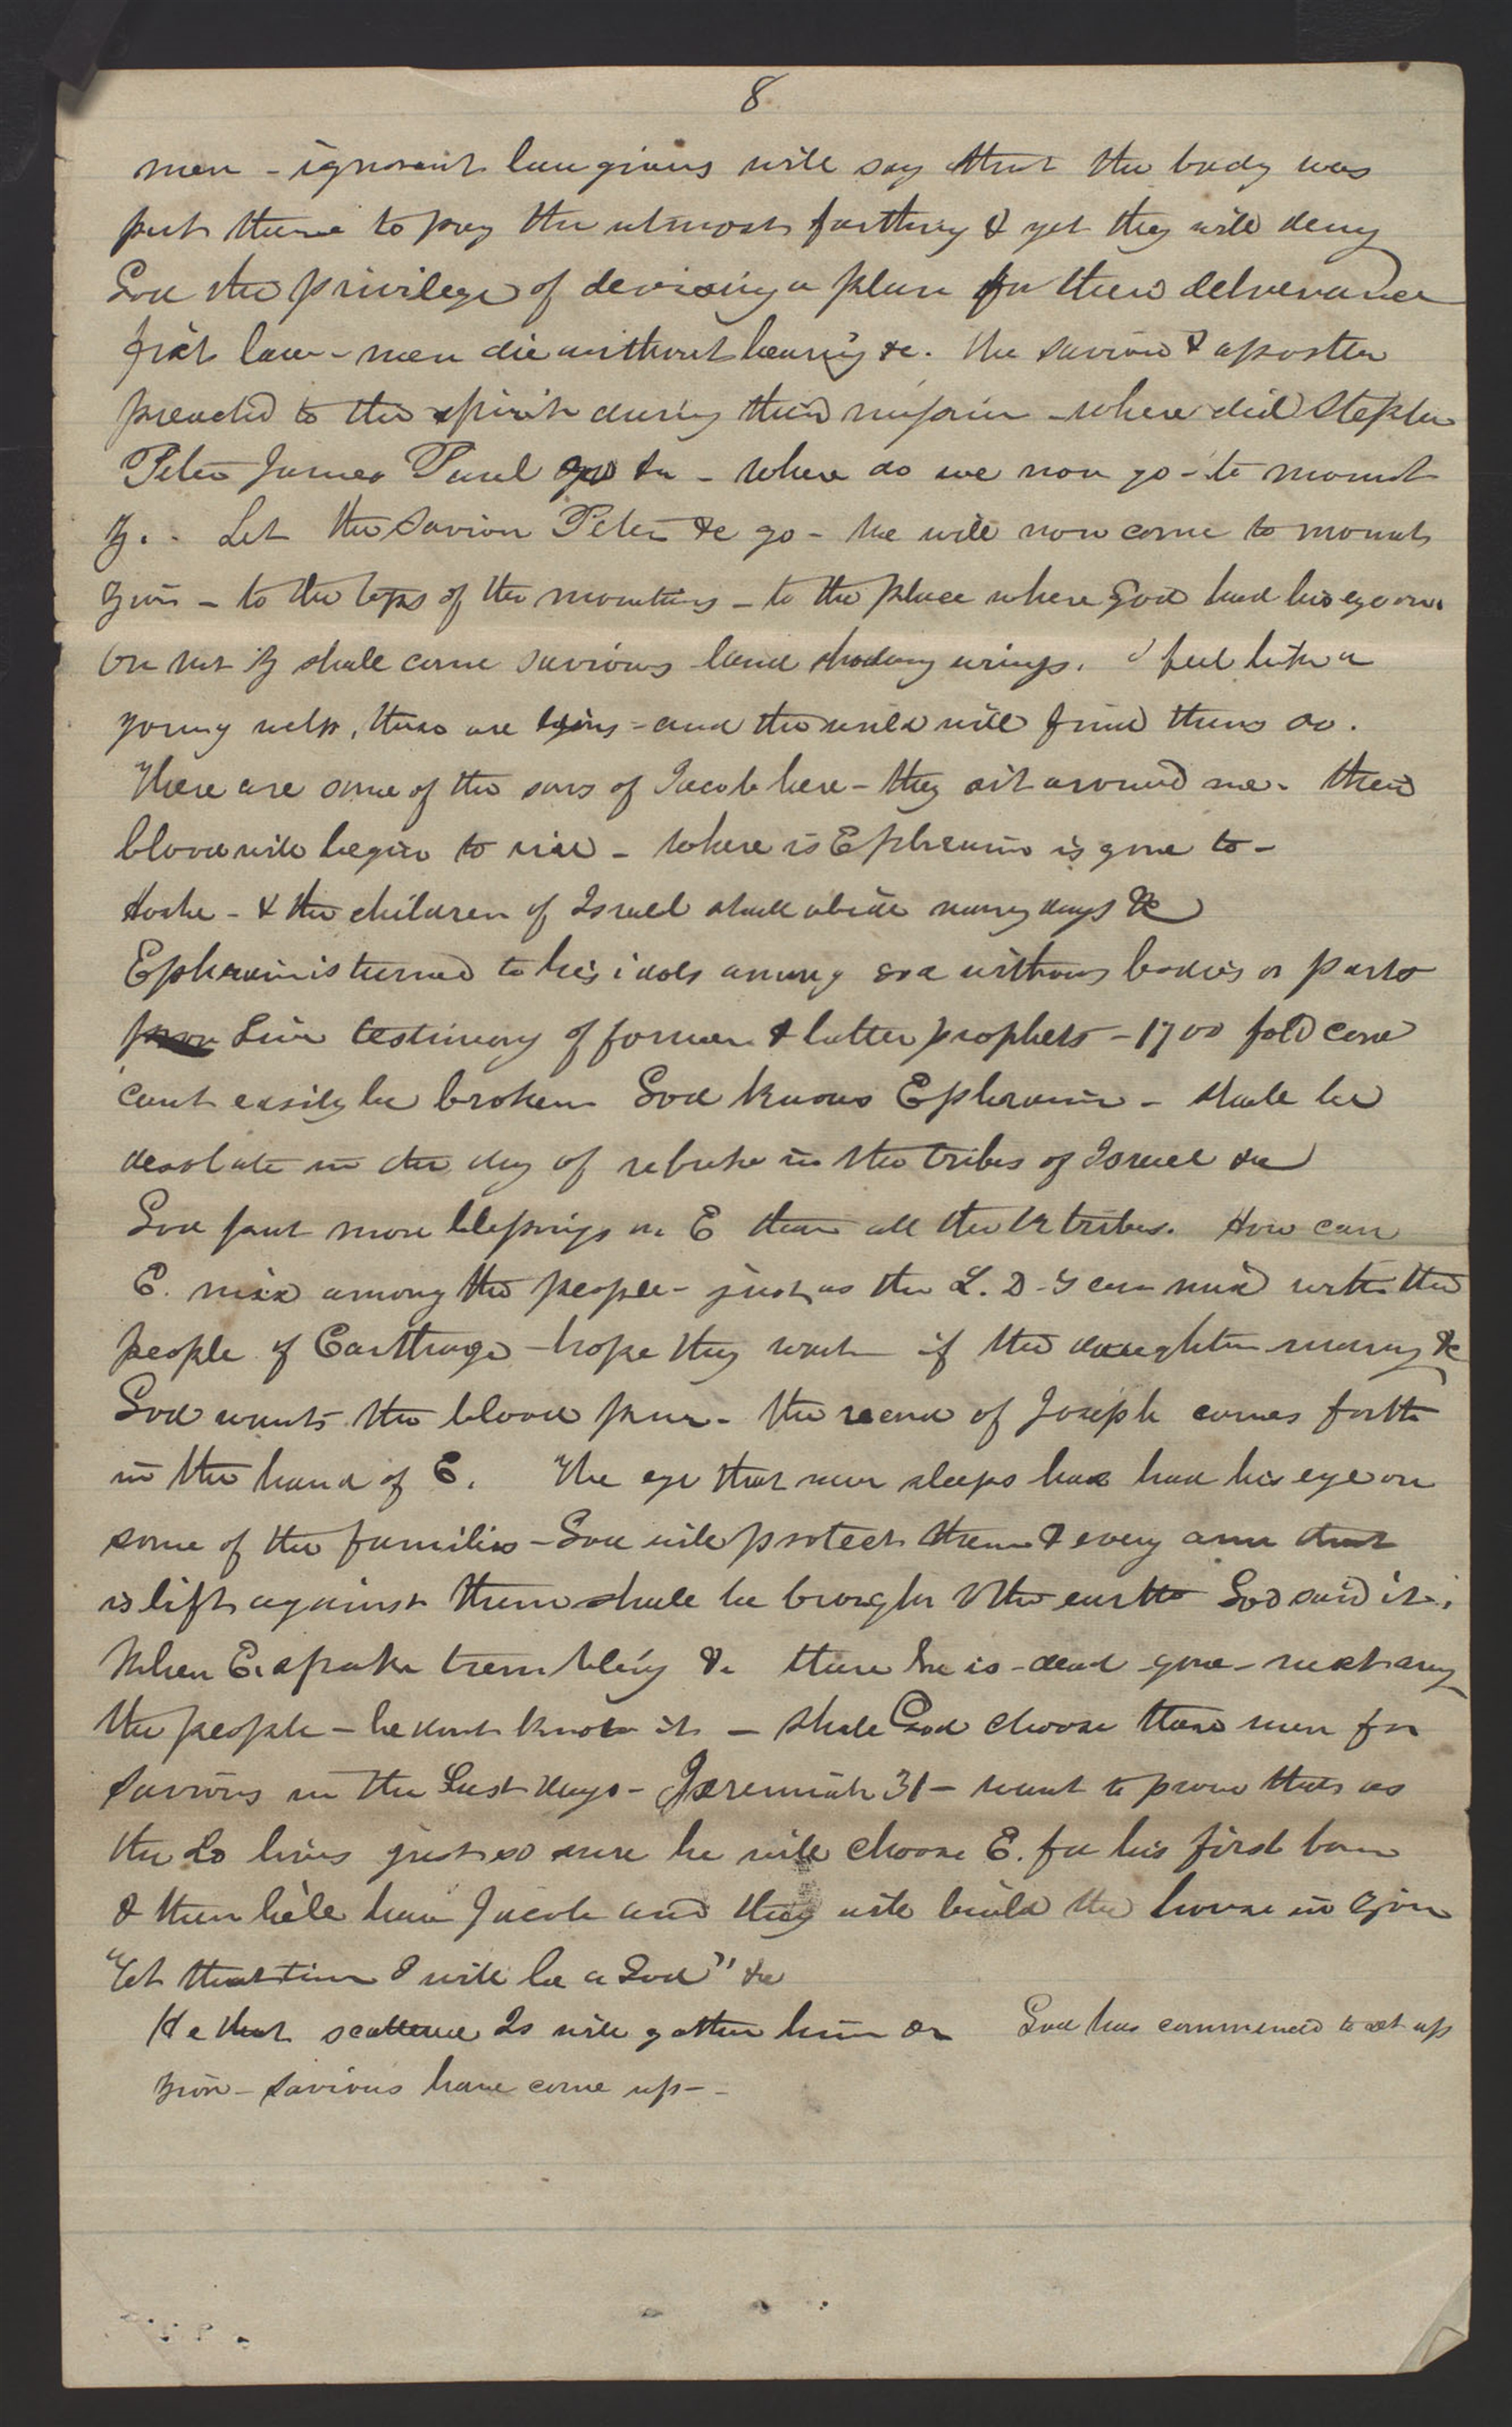 8
men - ignorant law givers will say that the body was
put there to pay the utmost farthing & yet they will deny
God the privilege of devising a plan for their deliverance
first law - men die without hearing &c. the savior & apostles
preached to the spirits during their mission - where did Stephen
Peter James Paul go &c - where do we now go - to mount
Z. - Let the Savior Peter &c go - he will now come to mount
Zion - to the tops of the mountains - to the place where God had his eye on.
On mt Z shall come saviours land shadowing wings. I feel like a
young whelp, these are lyons - and the world will find them so.
There are some of the sons of Jacob here - they sit around me - their
blood will begin to rise - where is Ephraim is gone to -
Hoshe - & the children of Israel shall abide many days &c
Ephraim is turned to his idols among god without bodies or parts
Live testimony of former & latter prophets - 1700 fold cord
cant easily be broken God knows Ephraim - shall be
desolate in the day of rebuke in the tribes of Israel &c
God put more blessings on E than all the 12 tribes. How can
E. mix among the people - just as the L. D. S can mix with the
people of Carthage - hope they wont if the daughters marry &c
God wants the blood pure - the record of Joseph comes forth
in the hand of E. The eye that never sleeps has had his eye on
some of the families - God will protect them & every arm that
is lift against them shall be brought to the earth God said it.
When E. spake trembling &c there he is - dead - gone - mixt among
the people - he dont know it - shall God choose these men for
saviors in the Last days - Jeremiah 31 - want to prove that as
the Lo lives just so sure he will choose E. for his first born
& then he'll have Jacob and they will build the house in Zion
"At that time I will be a God" &c
He that scattered Is will gather him &c God has commenced to set up
Zion - saviours have come up -